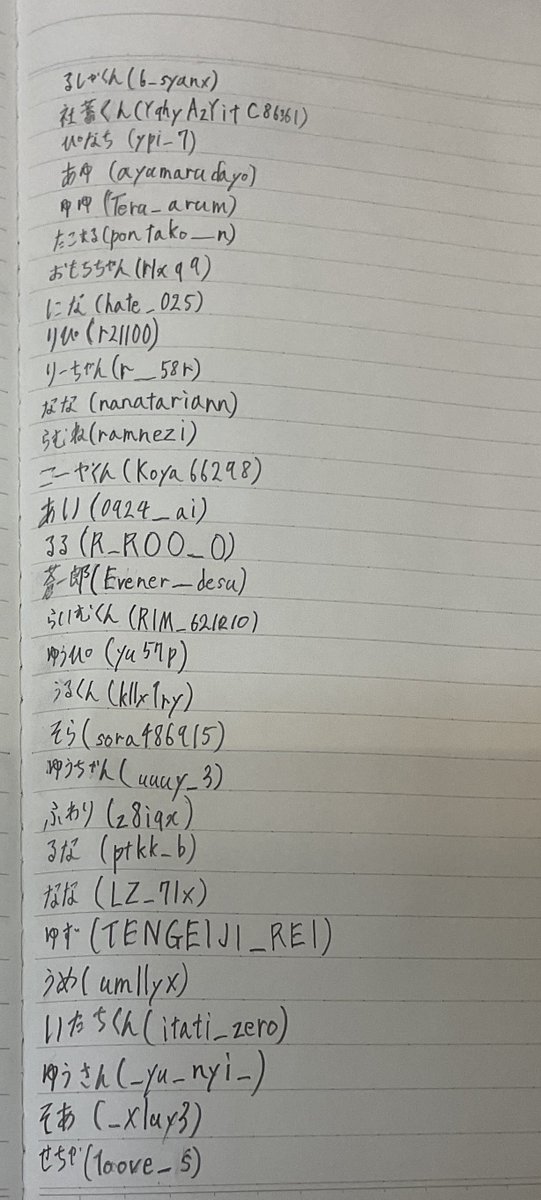 るしゃくん(6_syanx)
社蓄くん(YqhyAzYitC86361)
ぴなち(ypi_7)
あゆ(ayamarudayo)
ゆゆ(Tera_arum)
たこまる(pontako__n)
おもちちゃん(rlxqq)
にな(hate_025)
りぴ(r21100)
りーちゃん(r__58r)
なな(nanatariann)
らむね(ramnezi)
こーやくん(Koya66298)
あい(0924_ai)
るる(R_ROO_O)
蒼一郎(Evener_desu)
らいむくん(RIM_621210)
ゆうぴ(yu57p)
うるくん(kllx1ry)
そら(sora486915)
ゆうちゃん(uuuy_3)
ふわり(z8iqx)
るな(ptkk_b)
なな(LZ_7lx)
ゆず(TENGEIJI_REI)
うめ(umllyx)
いたちくん(itati_zero)
ゆうさん(_yu_nyi_)
そあ(_xlay3)
せちが(1oove_s)